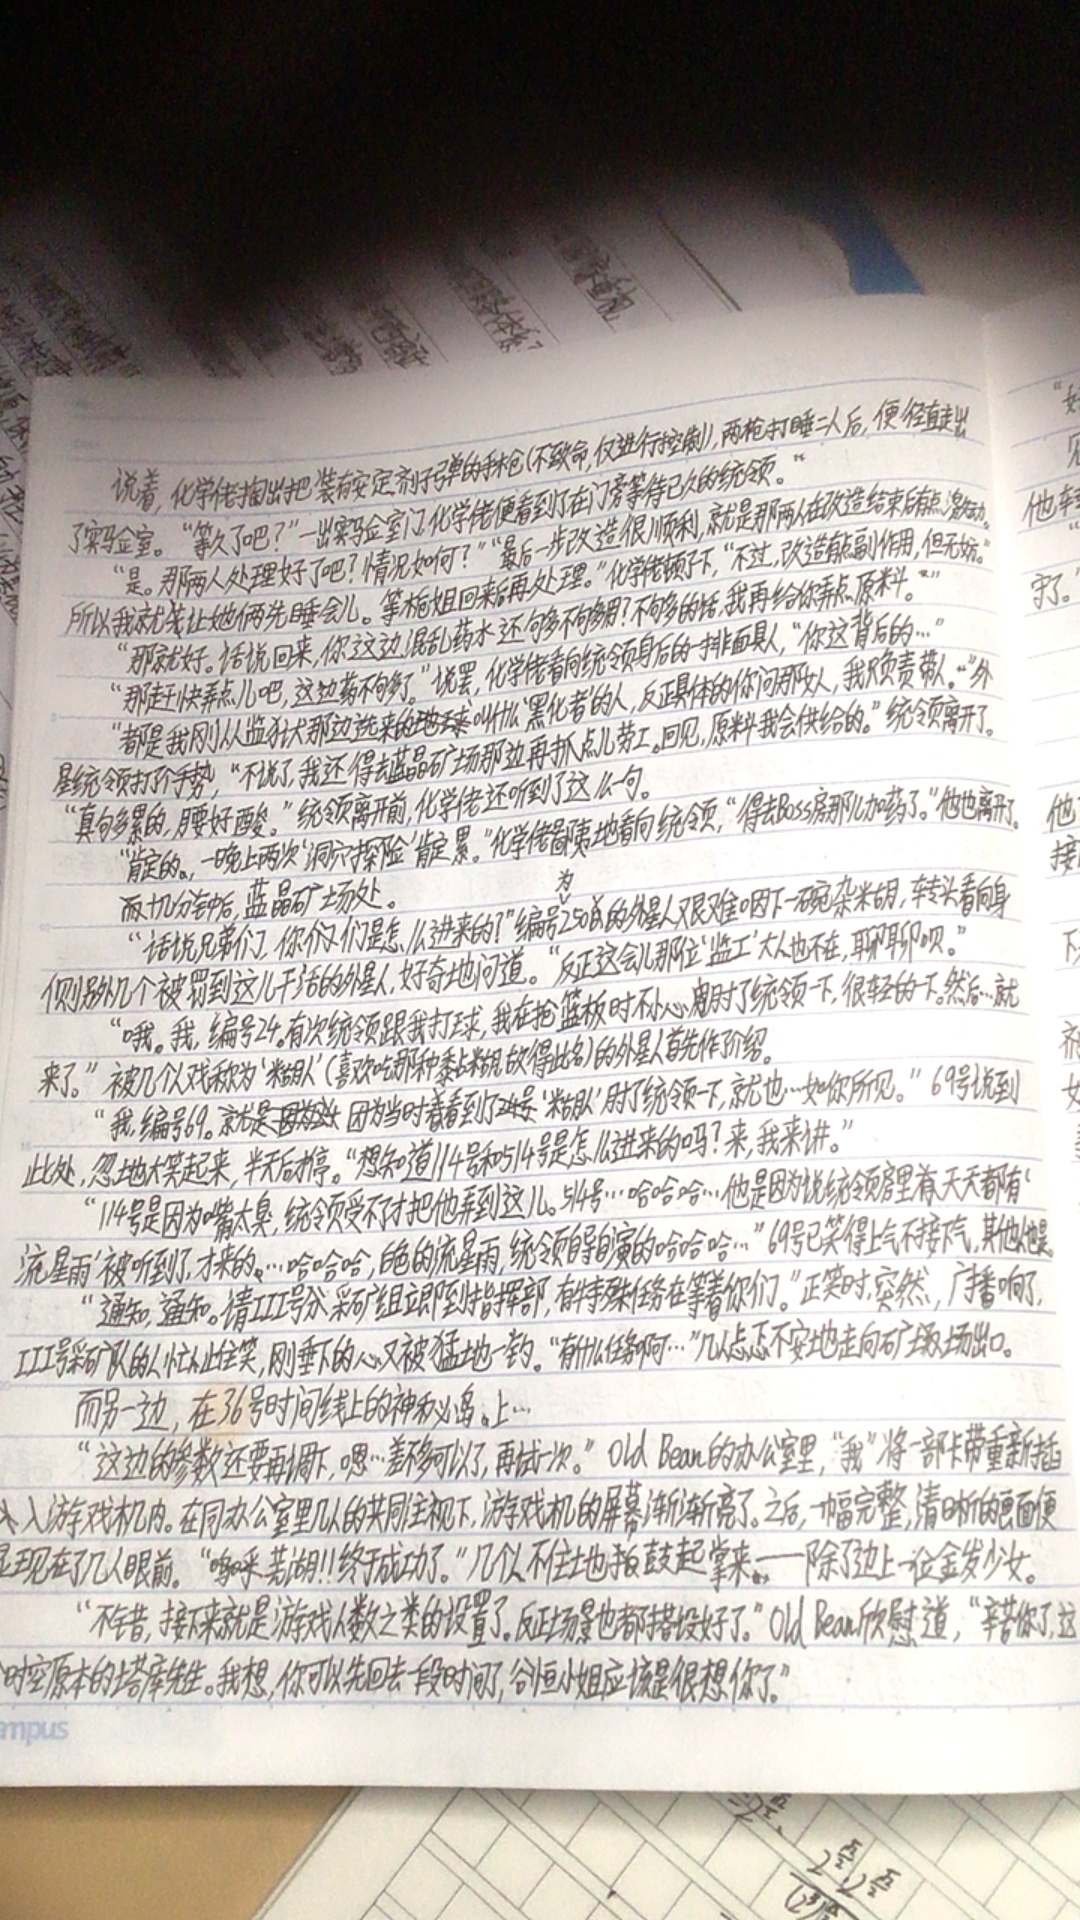 说着，化学佬掏出把装有安定剂子弹的手枪（不致命，仅进行控制），两枪打睡二人后，便径直走出
了实验室。“等久了吧？”一出实验室门，化学佬便看到了在门旁等待已久的统领。
“是。那两人处理好了吧？情况如何？”“最后一步改造很顺利，就是那两人在改造结束后有点激动。
所以我就先让她俩先睡会儿。等栀姐回来后再处理。”化学佬顿了下，“不过，改造有点副作用，但无妨。”
“那就好。话说回来，你这边混乱药水还够多不够多用？不够多的话，我再给你弄点原料。”
“那赶快弄点儿吧，这边药不够了。”说罢，化学佬看向统领身后的一排面具人，“你这背后的…”
“都是我刚从监狱那边选来的叫什么‘黑化者’的人，反正具体的你问那女人，我只负责带人。”外
星统领打个手势，“不说了，我还得去蓝晶矿场那边再抓点儿劳工。回见，原料我会供给的。”统领离开了。
“真够累的，腰好酸。”统领离开前，化学佬还听到了这么一句。
“肯定的。一晚上两次‘洞穴探险’肯定累。”化学佬鄙夷地看向统领，“得去Boss房那儿加药了。”他也离开了。
而十几分钟后，蓝晶矿场处。
“话说兄弟们，你们是怎么进来的？”编号为250的外星人艰难咽下一碗杂米糊，转头看向身
侧另外几个被罚到这儿干活的外星人，好奇地问道。“反正这会儿那位‘监工’大人也不在，聊聊呗。”
“哦。我，编号24。有次统领跟我打球，我在抢篮板时不小心肘了统领一下，很轻的一下。然后…就
来了。”被几个人戏称为‘米糊人’（喜欢吃那种黏米糊，故得此名）的外星人首先作介绍。
“我，编号69。就是因为当时看到了‘米糊人’肘了统领一下，就也…如你所见。”69号说到
此处，忽地大笑起来，半天后才停。“想知道114号和514号是怎么进来的吗？来，我来讲。”
“114号是因为嘴太臭，统领受不了才把他弄到这儿。514号…哈哈哈…他是因为说统领房里夜天天都有‘
流星雨’被听到了，才来的。…哈哈哈，白色的流星雨，统领自导自演的哈哈哈…”69号已笑得上气不接下气，其他人也是。
“通知，通知。请III号分采矿组立即到指挥部，有特殊任务在等着你们。”正笑时，突然，广播响了，
III号采矿队的人忙止住笑，刚垂下的心又被猛地一钓。“有什么任务啊…”几人忐忑不安地走向矿场出口。
而另一边，在36号时间线上的神秘岛上…
“这边的参数还要再调下，嗯…差不多可以了，再试一次。”Old Bean的办公室里，“我”将一部卡带重新插
入游戏机内。在同办公室里几人的共同注视下，游戏机的屏幕渐渐亮了。之后，一幅完整，清晰的画面便
显现在了几人眼前。“芜湖！！终于成功了。”几个人不住地拍鼓起掌来——除了边上一位金发少女。
“不错，接下来就是游戏人数之类的设置了。反正场景也都搭设好了。”Old Bean欣慰道，“辛苦你了，这
个时空原本的塔库先生。我想，你可以先回去一段时间了，谷恒小姐应该是很想你了。”
mpus